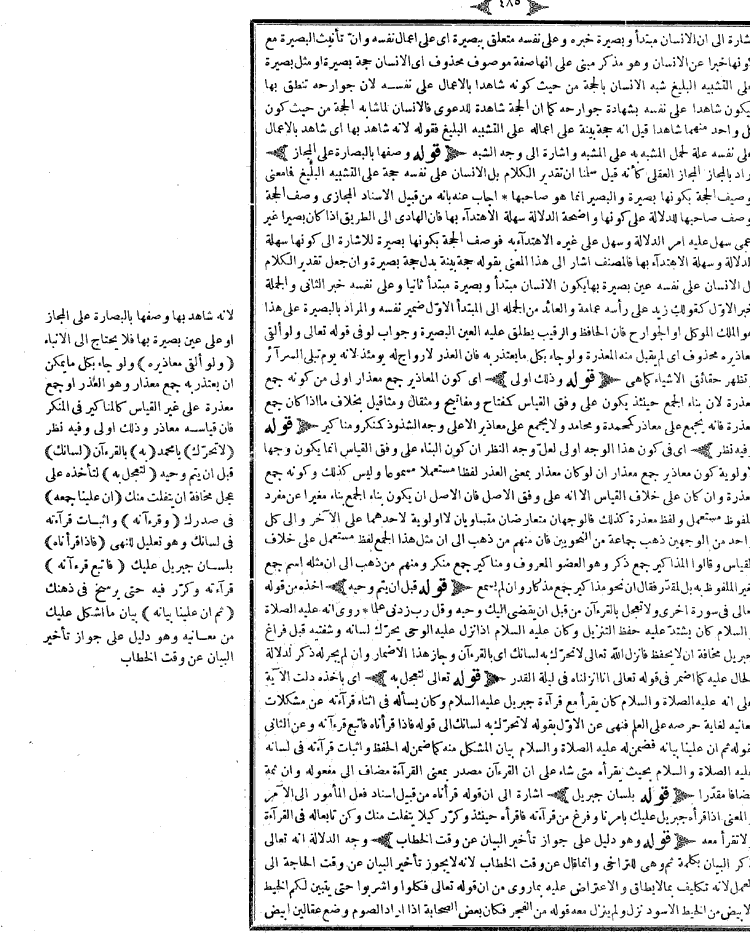 ٤٨٥
شارة الى ان الانسان مبتدأ وبصيرة خبره وعلى نفسه متعلق ببصيرة اى على اعمال نفسه وان تأنيث البصيرة مع
كونها خبرا عن الانسان وهو مذكر مبنى على انها صفة موصوف محذوف اى الانسان حجة بصيرة او مثل بصيرة
على التشبيه البليغ شبه الانسان بالحجة من حيث كونه شاهدا بالاعمال على نفسه لان جوارحه تنطق بها
يكون شاهدا على نفسه بشهادة جوارحه كما ان الحجة شاهدة للدعوى فالانسان لما شابه الحجة من حيث كون
كل واحد منهما شاهدا قيل انه حجة بينة على اعماله على التشبيه البليغ فقوله لانه شاهد بها اى شاهد بالاعمال
على نفسه علة لحمل المشبه به على المشبه واشارة الى وجه الشبه ﴿ قوله وصفها بالبصارة على المجاز ﴾
راد بالمجاز المجاز العقلى كأنه قيل سلمنا ان تقدير الكلام بل الانسان على نفسه حجة على التشبيه البليغ فامعنى
وصيف الحجة بكونها بصيرة والبصير انما هو صاحبها * اجاب عنه بانه من قبيل الاسناد المجازى وصف الحجة
وصف صاحبها للدلالة على كونها واضحة الدلالة سهلة الاهتدآء بها فان الهادى الى الطريق اذا كان بصيرا غير
عمى سهل عليه امر الدلالة وسهل على غيره الاهتدآء به فوصف الحجة بكونها بصيرة للاشارة الى كونها سهلة
الدلالة وسهلة الاهتدآء بها فالمصنف اشار الى هذا المعنى بقوله حجة بينة بدل حجة بصيرة وان جعل تقدير الكلام
ل الانسان على نفسه عين بصيرة بها يكون الانسان مبتدأ وبصيرة مبتدأ ثانيا وعلى نفسه خبر الثانى والجملة
خبر الاول كقولك زيد على رأسه عمامة والعائد من الجملة الى المبتدأ الاول ضمير نفسه والمراد بالبصيرة على هذا
هو الملك الموكل او الجوارح فان الحافظ والرقيب يطلق عليه العين البصيرة وجواب لو فى قوله تعالى ولو القى
معاذيره محذوف اى لم يقبل منه المعذرة ولو جاء بكل ما يعتذر به فان العذر لا رواج له يومئذ لانه يوم تبلى السرآئر
وتظهر حقائق الاشياء كماهى ﴿ قوله وذلك اولى ﴾ اى كون المعاذير جمع معذار اولى من كونه جمع
معذرة لان بناء الجمع حينئذ يكون على وفق القياس كمفتاح ومفاتيح ومثقال ومثاقيل بخلاف ما اذا كان جمع
معذرة فانه يجمع على معاذر كمحمدة ومحامد ولا يجمع على معاذير الا على وجه الشذوذ كنكر ومناكير ﴿ قوله
وفيه نظر ﴾ اى فى كون هذا الوجه اولى لعل وجه النظر ان كون البناء على وفق القياس انما يكون وجها
لاولوية كون معاذير جمع معذار ان لو كان معذار بمعنى العذر لفظا مستعملا مسموعا وليس كذلك وكونه جمع
معذرة وان كان على خلاف القياس الا انه على وفق الاصل فان الاصل ان يكون بناء الجمع بناء مغيرا عن مفرد
ملفوظ مستعمل ولفظ معذرة كذلك فالوجهان متعارضان متساويان لا اولوية لاحدهما على الآخر والى كل
واحد من الوجهين ذهب جماعة من النحويين فان منهم من ذهب الى ان مثل هذا الجمع لفظ مستعمل على خلاف
القياس وقالوا المذاكير جمع ذكر وهو العضو المعروف ومناكير جمع منكر ومنهم من ذهب الى ان مثله اسم جمع
غير الملفوظ به بل لمقدر فقال ان نحو مذاكير جمع مذكار وان لم يسمع ﴿ قوله قبل ان يتم وحيه ﴾ اخذه من قوله
تعالى فى سورة اخرى ولا تعجل بالقرءآن من قبل ان يقضى اليك وحيه وقل رب زدنى علما * روى انه عليه الصلاة
والسلام كان يشتد عليه حفظ التنزيل وكان عليه السلام اذا نزل عليه الوحى يحرك لسانه وشفتيه قبل فراغ
جبريل مخافة ان لا يحفظ فانزل الله تعالى لا تحرك به لسانك اى بالقرءآن وجاز هذا الاضمار وان لم يجر له ذكر لدلالة
الحال عليه كما اضمر فى قوله تعالى انا انزلناه فى ليلة القدر ﴿ قوله تعالى لتعجل به ﴾ اى باخذه دلت الآية
على انه عليه الصلاة والسلام كان يقرأ مع قرآءة جبريل عليه السلام وكان يسأله فى اثناء قرآءته عن مشكلات
معانيه لغاية حرصه على العلم فنهى عن الاول بقوله لا تحرك به لسانك الى قوله فاذا قرأناه فاتبع قرءآنه وعن الثانى
بقوله ثم ان علينا بيانه فضمن له عليه الصلاة والسلام بيان المشكل منه كما ضمن له الحفظ واثبات قرآءته فى لسانه
عليه الصلاة والسلام بحيث يقرأه متى شاء على ان القرءآن مصدر بمعنى القرآءة مضاف الى مفعوله وان ثمة
مضافا مقدرا ﴿ قوله بلسان جبريل ﴾ اشارة الى ان قوله قرأناه من قبيل اسناد فعل المأمور الى الآمر
والمعنى اذا قرأه جبريل عليك بامرنا وفرغ من قرآءته فاقرأه حينئذ وكرر كيلا يتفلت منك وكن تابعا له فى القرآءة
ولا تقرأ معه ﴿ قوله وهو دليل على جواز تأخير البيان عن وقت الخطاب ﴾ وجه الدلالة انه تعالى
ذكر البيان بكلمة ثم وهى للتراخى وانما قال عن وقت الخطاب لانه لا يجوز تأخير البيان عن وقت الحاجة الى
العمل لانه تكليف بما لا يطاق والاعتراض عليه بما روى من ان قوله تعالى فكلوا واشربوا حتى يتبين لكم الخيط
الابيض من الخيط الاسود نزل ولم ينزل معه قوله من الفجر فكان بعض الصحابة اذا اراد الصوم وضع عقالين ابيض
لانه شاهد بها وصفها بالبصارة على المجاز
او على عين بصيرة بها فلا يحتاج الى الانباء
﴿ ولو ألقى معاذيره ﴾ ولو جاء بكل ما يمكن
ان يعتذر به جمع معذار وهو العذر او جمع
معذرة على غير القياس كالمناكير فى المنكر
فان قياسه معاذر وذلك اولى وفيه نظر
﴿ لا تحرك ﴾ يا محمد ﴿ به ﴾ بالقرءآن ﴿ لسانك ﴾
قبل ان يتم وحيه ﴿ لتعجل به ﴾ لتأخذه على
عجل مخافة ان يتفلت منك ﴿ ان علينا جمعه ﴾
فى صدرك ﴿ وقرءآنه ﴾ واثبات قرآءته
فى لسانك وهو تعليل للنهى ﴿ فاذا قرأناه ﴾
بلسان جبريل عليك ﴿ فاتبع قرءآنه ﴾
قرآءته وكرر فيه حتى يرسخ فى ذهنك
﴿ ثم ان علينا بيانه ﴾ بيان ما اشكل عليك
من معانيه وهو دليل على جواز تأخير
البيان عن وقت الخطاب